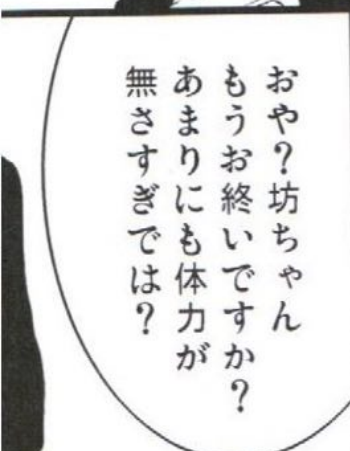 おや？坊ちゃん
もうお終いですか？
あまりにも体力が
無さすぎでは？